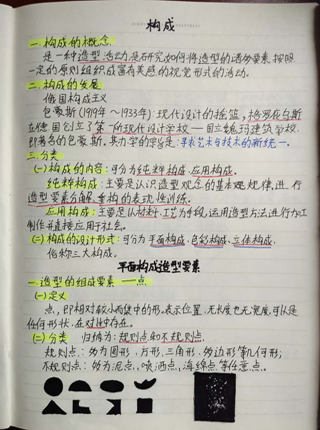 构成
一.构成的概念
是一种造型活动,是研究如何将造型的诸多要素按照
一定的原则组织成富有美感的视觉形式的活动。
二.构成的发展
俄国构成主义
包豪斯(1919年~1933年):现代设计的摇篮,格罗皮乌斯
在德国创立了第一所现代设计学校——国立魏玛建筑学校,
即著名的包豪斯。其办学的宗旨是:寻求艺术与技术的新统一。
三.分类
(一)构成的内容:可分为纯粹构成、应用构成。
纯粹构成:主要是认识造型观念的基本规律,进行
造型要素分解、重构的表现性训练。
应用构成:主要是以材料、工艺为手段,运用造型方法进行加工
制作并直接应用于社会。
(二)构成的设计形式:可分为平面构成、色彩构成、立体构成,
俗称三大构成。
平面构成造型要素
一.造型的组成要素——点
(一)定义
点,即相对较小而集中的形。表示位置,无长度也无宽度,可以是
任何形状,在对比中存在。
(二)分类 归纳为:规则点和不规则点
规则点:多为圆形、方形、三角形、多边形等几何形;
不规则点:多为泥点、喷洒点、海绵点等任意点。